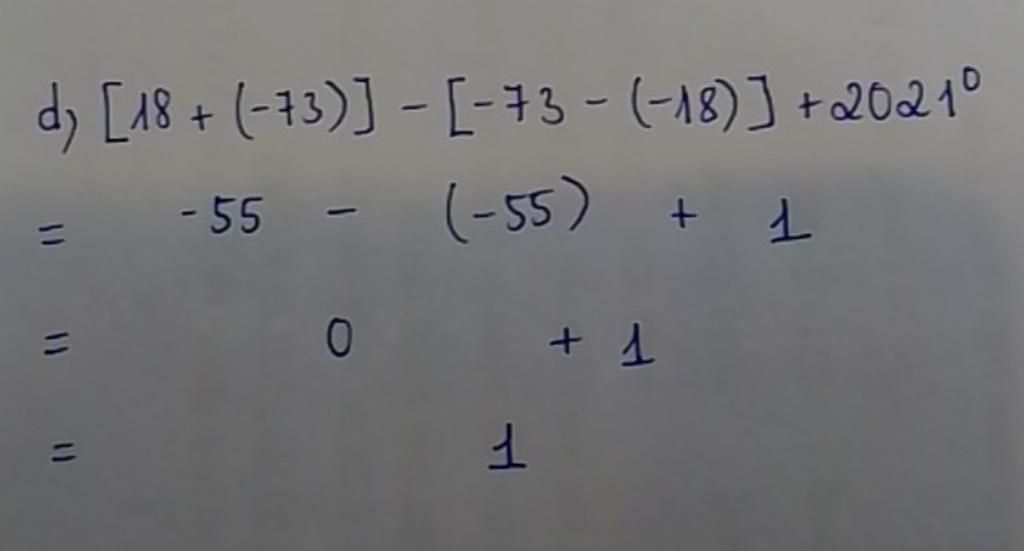 d) [18 + (-73)] - [-73 - (-18)] + 2021⁰
= -55 - (-55) + 1
= 0 + 1
= 1